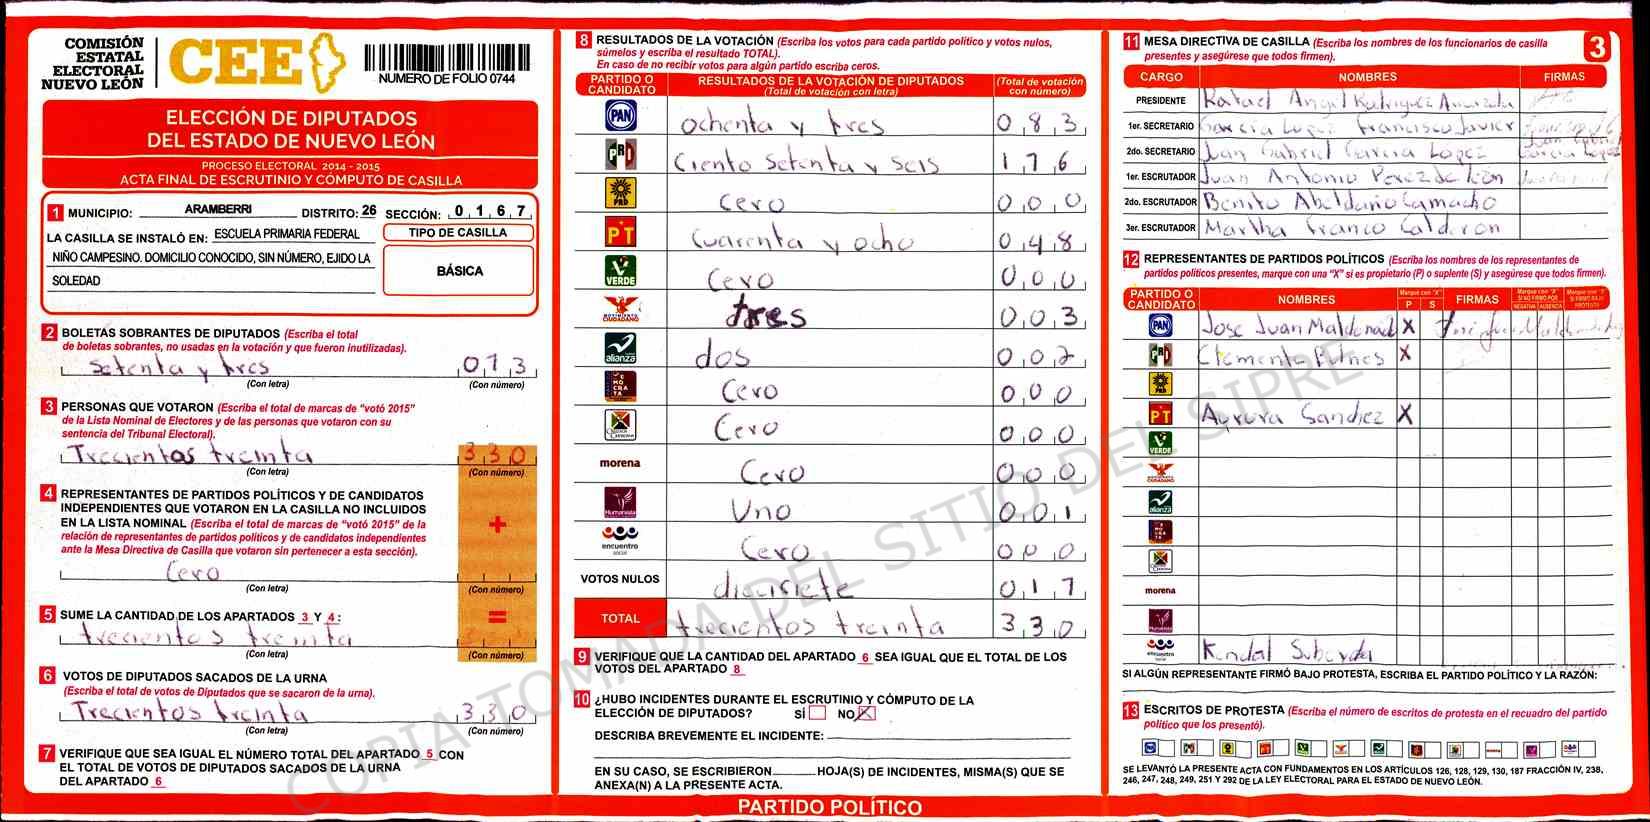 COMISIÓN
ESTATAL
ELECTORAL
NUEVO LEÓN
CEE
NUMERO DE FOLIO 0744
ELECCIÓN DE DIPUTADOS
DEL ESTADO DE NUEVO LEÓN
PROCESO ELECTORAL 2014 - 2015
ACTA FINAL DE ESCRUTINIO Y CÓMPUTO DE CASILLA
1 MUNICIPIO: ARAMBERRI DISTRITO: 26 SECCIÓN: 0 1 6 7
LA CASILLA SE INSTALÓ EN: ESCUELA PRIMARIA FEDERAL
NIÑO CAMPESINO. DOMICILIO CONOCIDO, SIN NÚMERO, EJIDO LA
SOLEDAD
TIPO DE CASILLA
BÁSICA
2 BOLETAS SOBRANTES DE DIPUTADOS (Escriba el total
de boletas sobrantes, no usadas en la votación y que fueron inutilizadas).
setenta y tres 0 7 3
(Con letra) (Con número)
3 PERSONAS QUE VOTARON (Escriba el total de marcas de "votó 2015"
de la Lista Nominal de Electores y de las personas que votaron con su
sentencia del Tribunal Electoral).
Trecientos treinta 3 3 0
(Con letra) (Con número)
4 REPRESENTANTES DE PARTIDOS POLÍTICOS Y DE CANDIDATOS
INDEPENDIENTES QUE VOTARON EN LA CASILLA NO INCLUIDOS
EN LA LISTA NOMINAL (Escriba el total de marcas de "votó 2015" de la
relación de representantes de partidos políticos y de candidatos independientes
ante la Mesa Directiva de Casilla que votaron sin pertenecer a esta sección).
+
Cero
(Con letra) (Con número)
5 SUME LA CANTIDAD DE LOS APARTADOS 3 Y 4: =
trecientos treinta
(Con letra) (Con número)
6 VOTOS DE DIPUTADOS SACADOS DE LA URNA
(Escriba el total de votos de Diputados que se sacaron de la urna).
Trecientos treinta 3 3 0
(Con letra) (Con número)
7 VERIFIQUE QUE SEA IGUAL EL NÚMERO TOTAL DEL APARTADO 5 CON
EL TOTAL DE VOTOS DE DIPUTADOS SACADOS DE LA URNA
DEL APARTADO 6
8 RESULTADOS DE LA VOTACIÓN (Escriba los votos para cada partido político y votos nulos,
súmelos y escriba el resultado TOTAL).
En caso de no recibir votos para algún partido escriba ceros.
PARTIDO O CANDIDATO RESULTADOS DE LA VOTACIÓN DE DIPUTADOS (Total de votación con letra) (Total de votación con número)
PAN ochenta y tres 0 8 3
PRI Ciento setenta y seis 1 7 6
PRD Cero 0 0 0
PT Cuarenta y ocho 0 4 8
VERDE Cero 0 0 0
MOVIMIENTO CIUDADANO tres 0 0 3
alianza dos 0 0 2
DEMOCRATA Cero 0 0 0
CRUZADA CIUDADANA Cero 0 0 0
morena Cero 0 0 0
Humanista Uno 0 0 1
encuentro social Cero 0 0 0
VOTOS NULOS diecisiete 0 1 7
TOTAL trecientos treinta 3 3 0
9 VERIFIQUE QUE LA CANTIDAD DEL APARTADO 6 SEA IGUAL QUE EL TOTAL DE LOS
VOTOS DEL APARTADO 8
10 ¿HUBO INCIDENTES DURANTE EL ESCRUTINIO Y CÓMPUTO DE LA
ELECCIÓN DE DIPUTADOS? SÍ NO X
DESCRIBA BREVEMENTE EL INCIDENTE:
EN SU CASO, SE ESCRIBIERON HOJA(S) DE INCIDENTES, MISMA(S) QUE SE
ANEXA(N) A LA PRESENTE ACTA.
11 MESA DIRECTIVA DE CASILLA (Escriba los nombres de los funcionarios de casilla
presentes y asegúrese que todos firmen).
3
CARGO NOMBRES FIRMAS
PRESIDENTE Rafael Angel Rodriguez
1er. SECRETARIO Garcia Lopez Francisco Javier
2do. SECRETARIO Juan Gabriel Garcia Lopez Juan Gabriel Garcia Lopez
1er. ESCRUTADOR Juan Antonio Perez de león
2do. ESCRUTADOR Benito Abeldaño Camacho
3er. ESCRUTADOR Martha Franco Calderon
12 REPRESENTANTES DE PARTIDOS POLÍTICOS (Escriba los nombres de los representantes de
partidos políticos presentes, marque con una "X" si es propietario (P) o suplente (S) y asegúrese que todos firmen).
PARTIDO O CANDIDATO NOMBRES Marque con "X" P S FIRMAS Marque con "X" SI NO FIRMÓ POR NEGATIVA AUSENCIA Marque con "X" SI FIRMÓ BAJO PROTESTA
PAN Jose Juan Maldonado X
PRI Clemente X
PRD
PT Aurora Sanchez X
VERDE
MOVIMIENTO CIUDADANO
alianza
morena
Humanista
encuentro social Kendal
SI ALGÚN REPRESENTANTE FIRMÓ BAJO PROTESTA, ESCRIBA EL PARTIDO POLÍTICO Y LA RAZÓN:
13 ESCRITOS DE PROTESTA (Escriba el número de escritos de protesta en el recuadro del partido
político que los presentó).
SE LEVANTÓ LA PRESENTE ACTA CON FUNDAMENTOS EN LOS ARTÍCULOS 126, 128, 129, 130, 187 FRACCIÓN IV, 238,
246, 247, 248, 249, 251 Y 292 DE LA LEY ELECTORAL PARA EL ESTADO DE NUEVO LEÓN.
PARTIDO POLÍTICO
COPIA TOMADA DEL SITIO DEL SIPRE